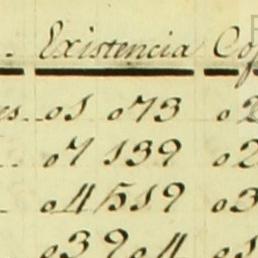 Existencia Co
es o1 o73 o2
o7 139 o2
o4 519 o3
o39o4 o1